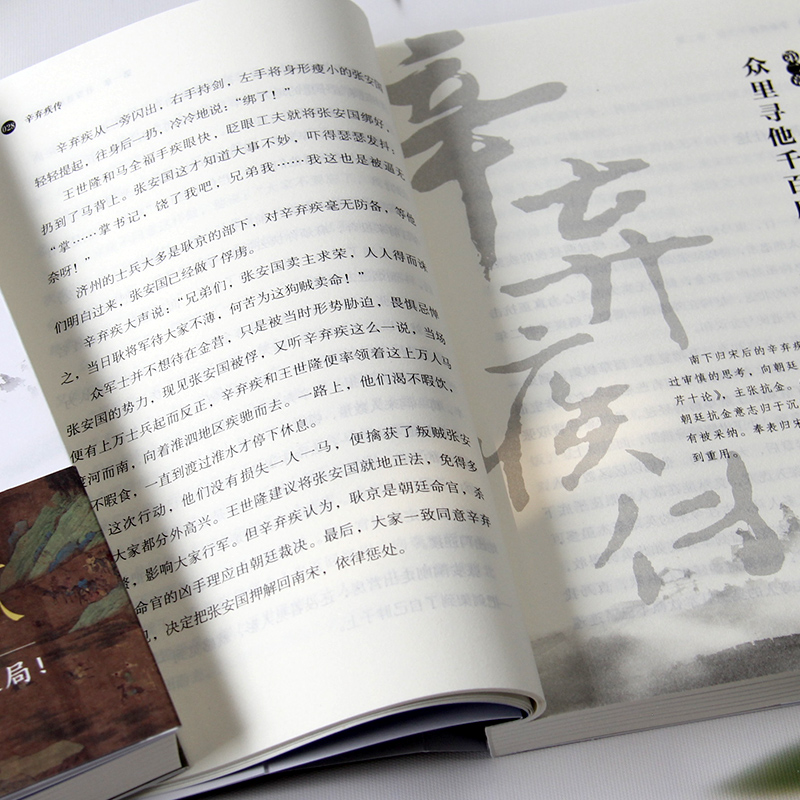 028 辛弃疾传
辛弃疾从一旁闪出，右手持剑，左手将身形瘦小的张安国
轻轻提起，往身后一扔，冷冷地说：“绑了！”
王世隆和马全福手疾眼快，眨眼工夫就将张安国绑好，
扔到了马背上。张安国这才知道大事不妙，吓得瑟瑟发抖：
“掌……掌书记，饶了我吧，兄弟我……我这也是被逼无
奈呀！”
济州的士兵大多是耿京的部下，对辛弃疾毫无防备，等他
们明白过来，张安国已经做了俘虏。
辛弃疾大声说：“兄弟们，张安国卖主求荣，人人得而诛
之，当日耿将军待大家不薄，何苦为这狗贼卖命！”
众军士并不想待在金营，只是被当时形势胁迫，畏惧忌惮
张安国的势力，现见张安国被俘，又听辛弃疾这么一说，当场
便有上万士兵起而反正，辛弃疾和王世隆便率领着这上万人马
渡河而南，向着淮泗地区疾驰而去。一路上，他们渴不暇饮，
不暇食，一直到渡过淮水才停下休息。
这次行动，他们没有损失一人一马，便擒获了叛贼张安
大家都分外高兴。王世隆建议将张安国就地正法，免得多
，影响大家行军。但辛弃疾认为，耿京是朝廷命官，杀
命官的凶手理应由朝廷裁决。最后，大家一致同意辛弃
，决定把张安国押解回南宋，依律惩处。
辛弃疾传
众里寻他千百
南下归宋后的辛弃疾
过审慎的思考，向朝廷
芹十论》，主张抗金。
朝廷抗金意志归于沉
有被采纳。奉表归宋
到重用。
局！